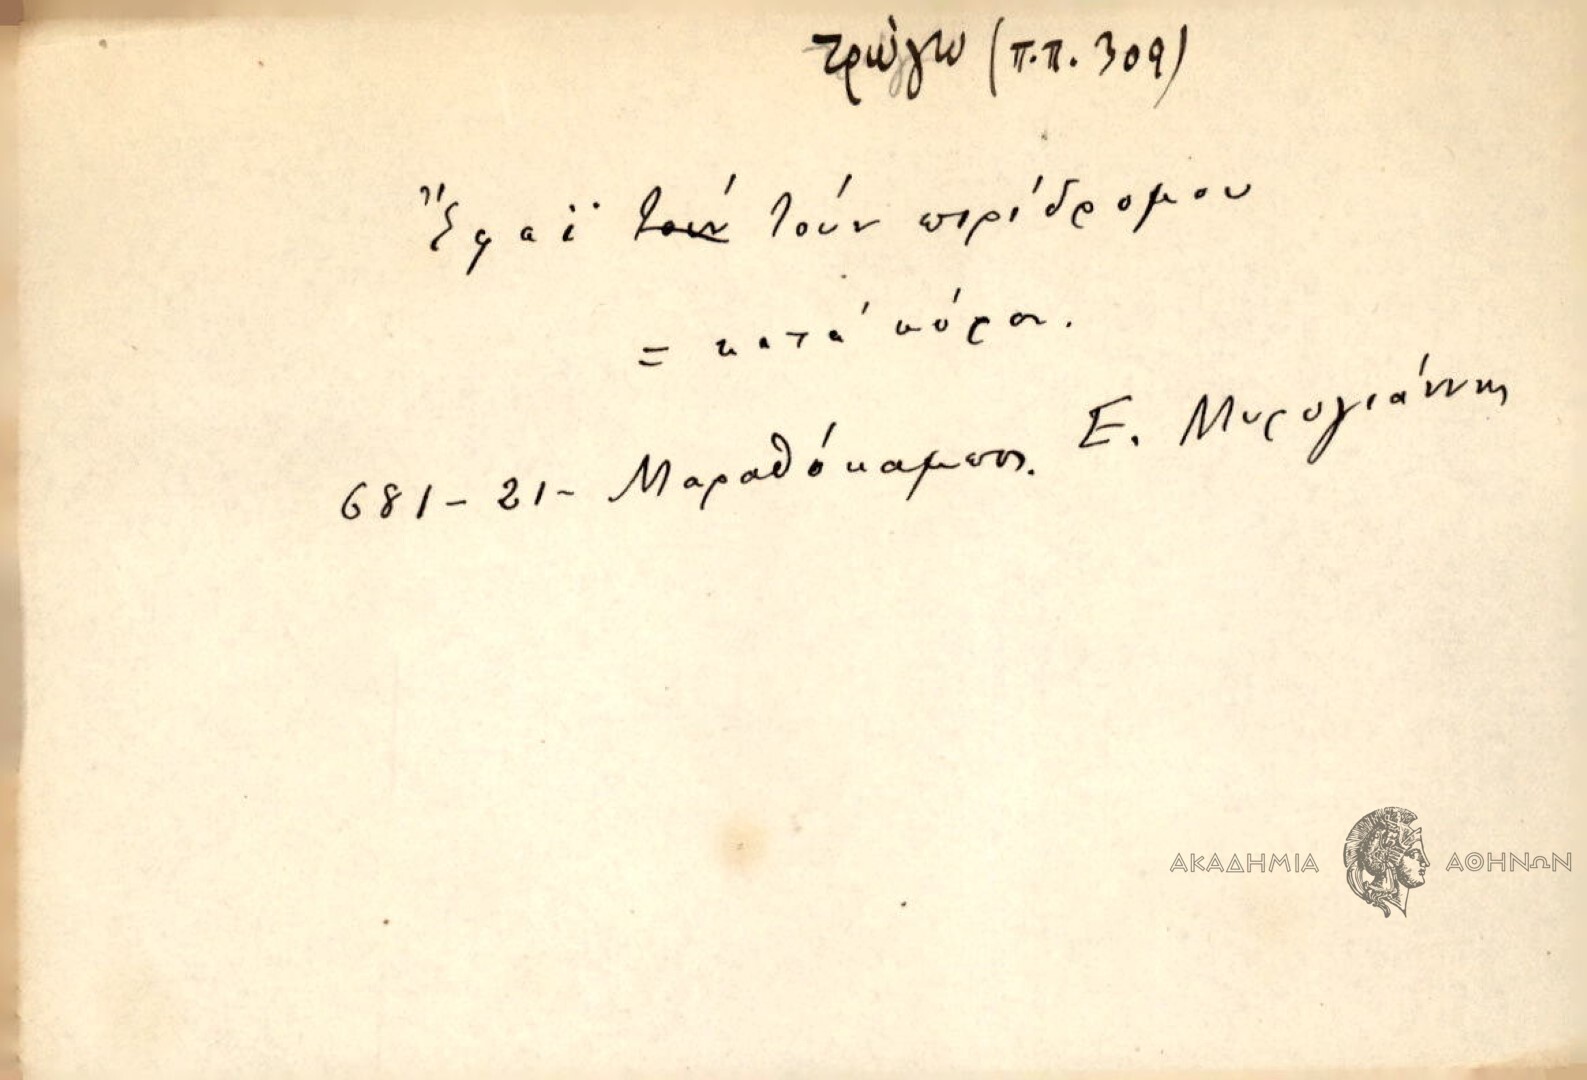 τρώγω (π.π. 309)
Ἔφαϊ τούν τούν πιρίδρομου
= κατά κόρον.
681-21- Μαραθόκαμπος. Ε. Μυρογιάννης
ΑΚΑΔΗΜΙΑ ΑΘΗΝΩΝ